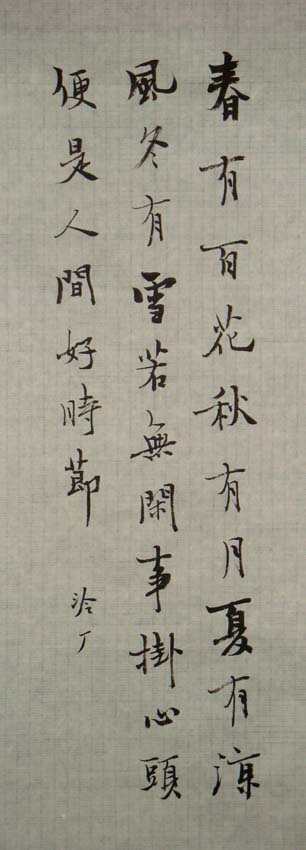 春有百花秋有月夏有涼
風冬有雪若無閑事掛心頭
便是人間好時節
泠丁